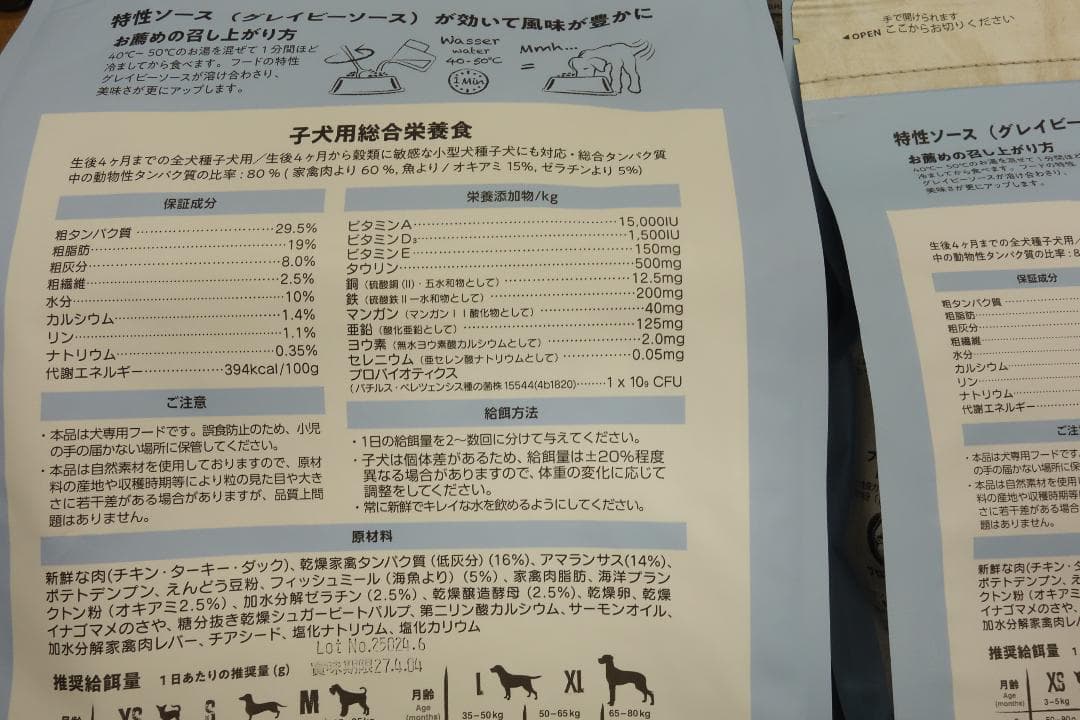 特性ソース（グレイビーソース）が効いて風味が豊かに
お薦めの召し上がり方
40℃～50℃のお湯を混ぜて１分間ほど
冷ましてから食べます。フードの特性
グレイビーソースが溶け合わさり、
美味さが更にアップします。
Wasser
water
40-50℃
1 Min
Mmh...
=
子犬用総合栄養食
生後4ヶ月までの全犬種子犬用／生後4ヶ月から穀類に敏感な小型犬種子犬にも対応・総合タンパク質
中の動物性タンパク質の比率：80％(家禽肉より60％,魚より/オキアミ15%,ゼラチンより5%)
保証成分
粗タンパク質 29.5%
粗脂肪 19%
粗灰分 8.0%
粗繊維 2.5%
水分 10%
カルシウム 1.4%
リン 1.1%
ナトリウム 0.35%
代謝エネルギー 394kcal/100g
栄養添加物/kg
ビタミンA 15,000IU
ビタミンD₃ 1,500IU
ビタミンE 150mg
タウリン 500mg
銅（硫酸銅(II)・五水和物として） 12.5mg
鉄（硫酸鉄II一水和物として） 200mg
マンガン（マンガンII酸化物として） 40mg
亜鉛（酸化亜鉛として） 125mg
ヨウ素（無水ヨウ素酸カルシウムとして） 2.0mg
セレニウム（亜セレン酸ナトリウムとして） 0.05mg
プロバイオティクス
（バチルス・ベレツェンシス種の菌株15544(4b1820) 1 x 10₉ CFU
ご注意
・本品は犬専用フードです。誤食防止のため、小児
の手の届かない場所に保管してください。
・本品は自然素材を使用しておりますので、原材
料の産地や収穫時期等により粒の見た目や大き
さに若干差がある場合がありますが、品質上問
題はありません。
給餌方法
・1日の給餌量を2～数回に分けて与えてください。
・子犬は個体差があるため、給餌量は±20%程度
異なる場合がありますので、体重の変化に応じて
調整をしてください。
・常に新鮮でキレイな水を飲めるようにしてください。
原材料
新鮮な肉(チキン・ターキー・ダック)、乾燥家禽タンパク質（低灰分）(16%)、アマランサス(14%)、
ポテトデンプン、えんどう豆粉、フィッシュミール（海魚より）(5%)、家禽肉脂肪、海洋プラン
クトン粉（オキアミ2.5%）、加水分解ゼラチン（2.5%）、乾燥醸造酵母（2.5%）、乾燥卵、乾燥
イナゴマメのさや、糖分抜き乾燥シュガービートパルプ、第二リン酸カルシウム、サーモンオイル、
加水分解家禽肉レバー、チアシード、塩化ナトリウム、塩化カリウム
Lot No.25024.6
賞味期限27.4.04
推奨給餌量 1日あたりの推奨量(g)
XS S M
月齢
Age
(months)
L XL
35–50kg 50–65kg 65–80kg
手で開けられます
◀OPEN ここからお切りください
特性ソース（グレイビー
お薦めの召し上がり方
40℃～50℃のお湯を混ぜて１分間ほど
冷ましてから食べます。フードの特性
グレイビーソースが溶け合わさり、
美味さが更にアップします。
生後4ヶ月までの全犬種子犬用／
中の動物性タンパク質の比率：8
保証成分
粗タンパク質
粗脂肪
粗灰分
粗繊維
水分
カルシウム
リン
ナトリウム
代謝エネルギー
ご注
・本品は犬専用フードです。
の手の届かない場所に保
・本品は自然素材を使用
料の産地や収穫時期等
さに若干差がある場合
題はありません。
新鮮な肉(チキン・
ポテトデンプン、え
クトン粉（オキアミ
イナゴマメのさや、
加水分解家禽肉レ
推奨給餌量 1
月齢
Age
(months)
XS
3–5kg